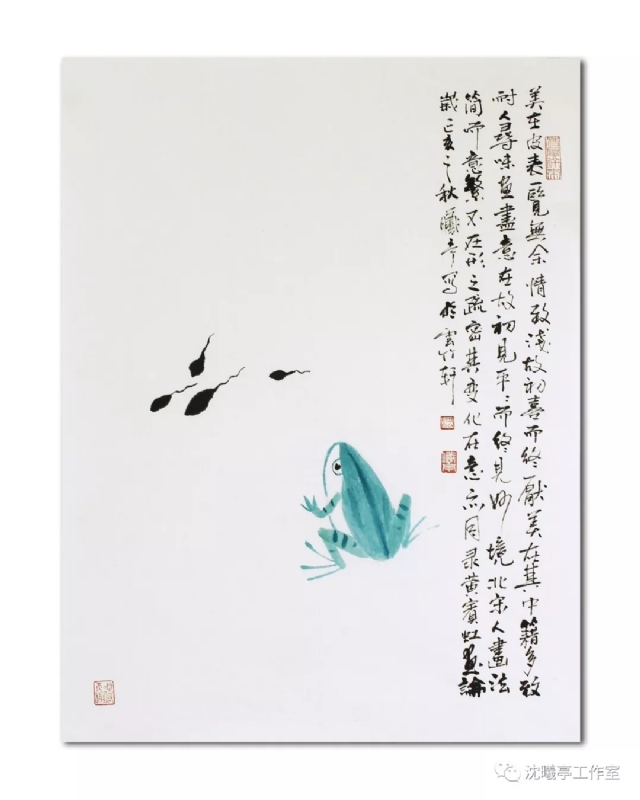 美在皮表一覧無余情致淺故初喜而終厭美在其中籍多致
耐人尋味画盡意在故初見平〻而終見妙境北宋人畫法
简而意繁不在形之疏密其变化在意之同录黄賓虹画論
歲己亥之秋曦亭写於雲竹軒
沈曦亭工作室